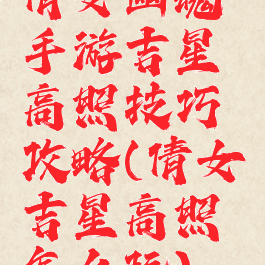 倩女幽魂
手游吉星
高照技巧
攻略(倩女
吉星高照